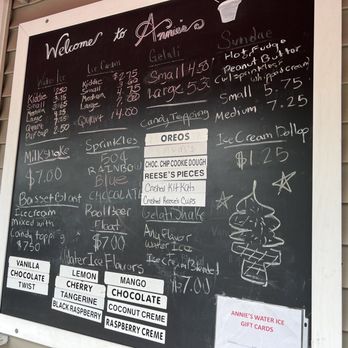 Welcome to Annie's
Water Ice
Kiddie
Small
Medium
Large
Quart
Ice Cream
Kiddie $2.75
Small
Medium
Large
Quart 14.00
Gelati
Small 4.50
Large
Sundae
Hot Fudge
Peanut Butter
w/ sprinkles
whipped cream
Small 5.75
Medium 7.25
Candy Topping
OREOS
CHOC. CHIP COOKIE DOUGH
REESE'S PIECES
Crushed Kit Kats
Crushed Reese's Cups
Ice Cream Dollop
$1.25
Milkshake
$7.00
Sprinkles
50¢
RAINBOW
Blue
CHOCOLATE
Basset Blast
Ice cream
mixed with
Candy topping
$7.50
Root Beer
Float
$7.00
Gelati Shake
Any flavor
Water Ice
Ice Cream Blended
$7.00
Water Ice Flavors
VANILLA
CHOCOLATE
TWIST
LEMON
CHERRY
TANGERINE
BLACK RASPBERRY
MANGO
CHOCOLATE
COCONUT CREME
RASPBERRY CREME
ANNIE'S WATER ICE
GIFT CARDS